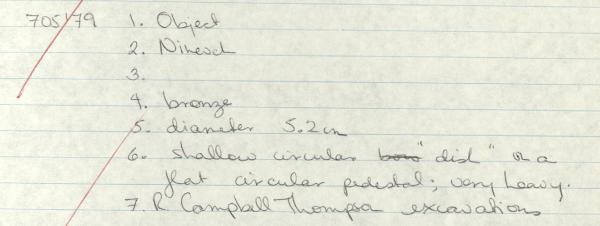 705'79 1. Object
2. Nineveh
3.
4. bronze
5. diameter 5.2cm
6. shallow circular "dish" on a
flat circular pedestal; very heavy.
7. R Campbell Thompson excavations